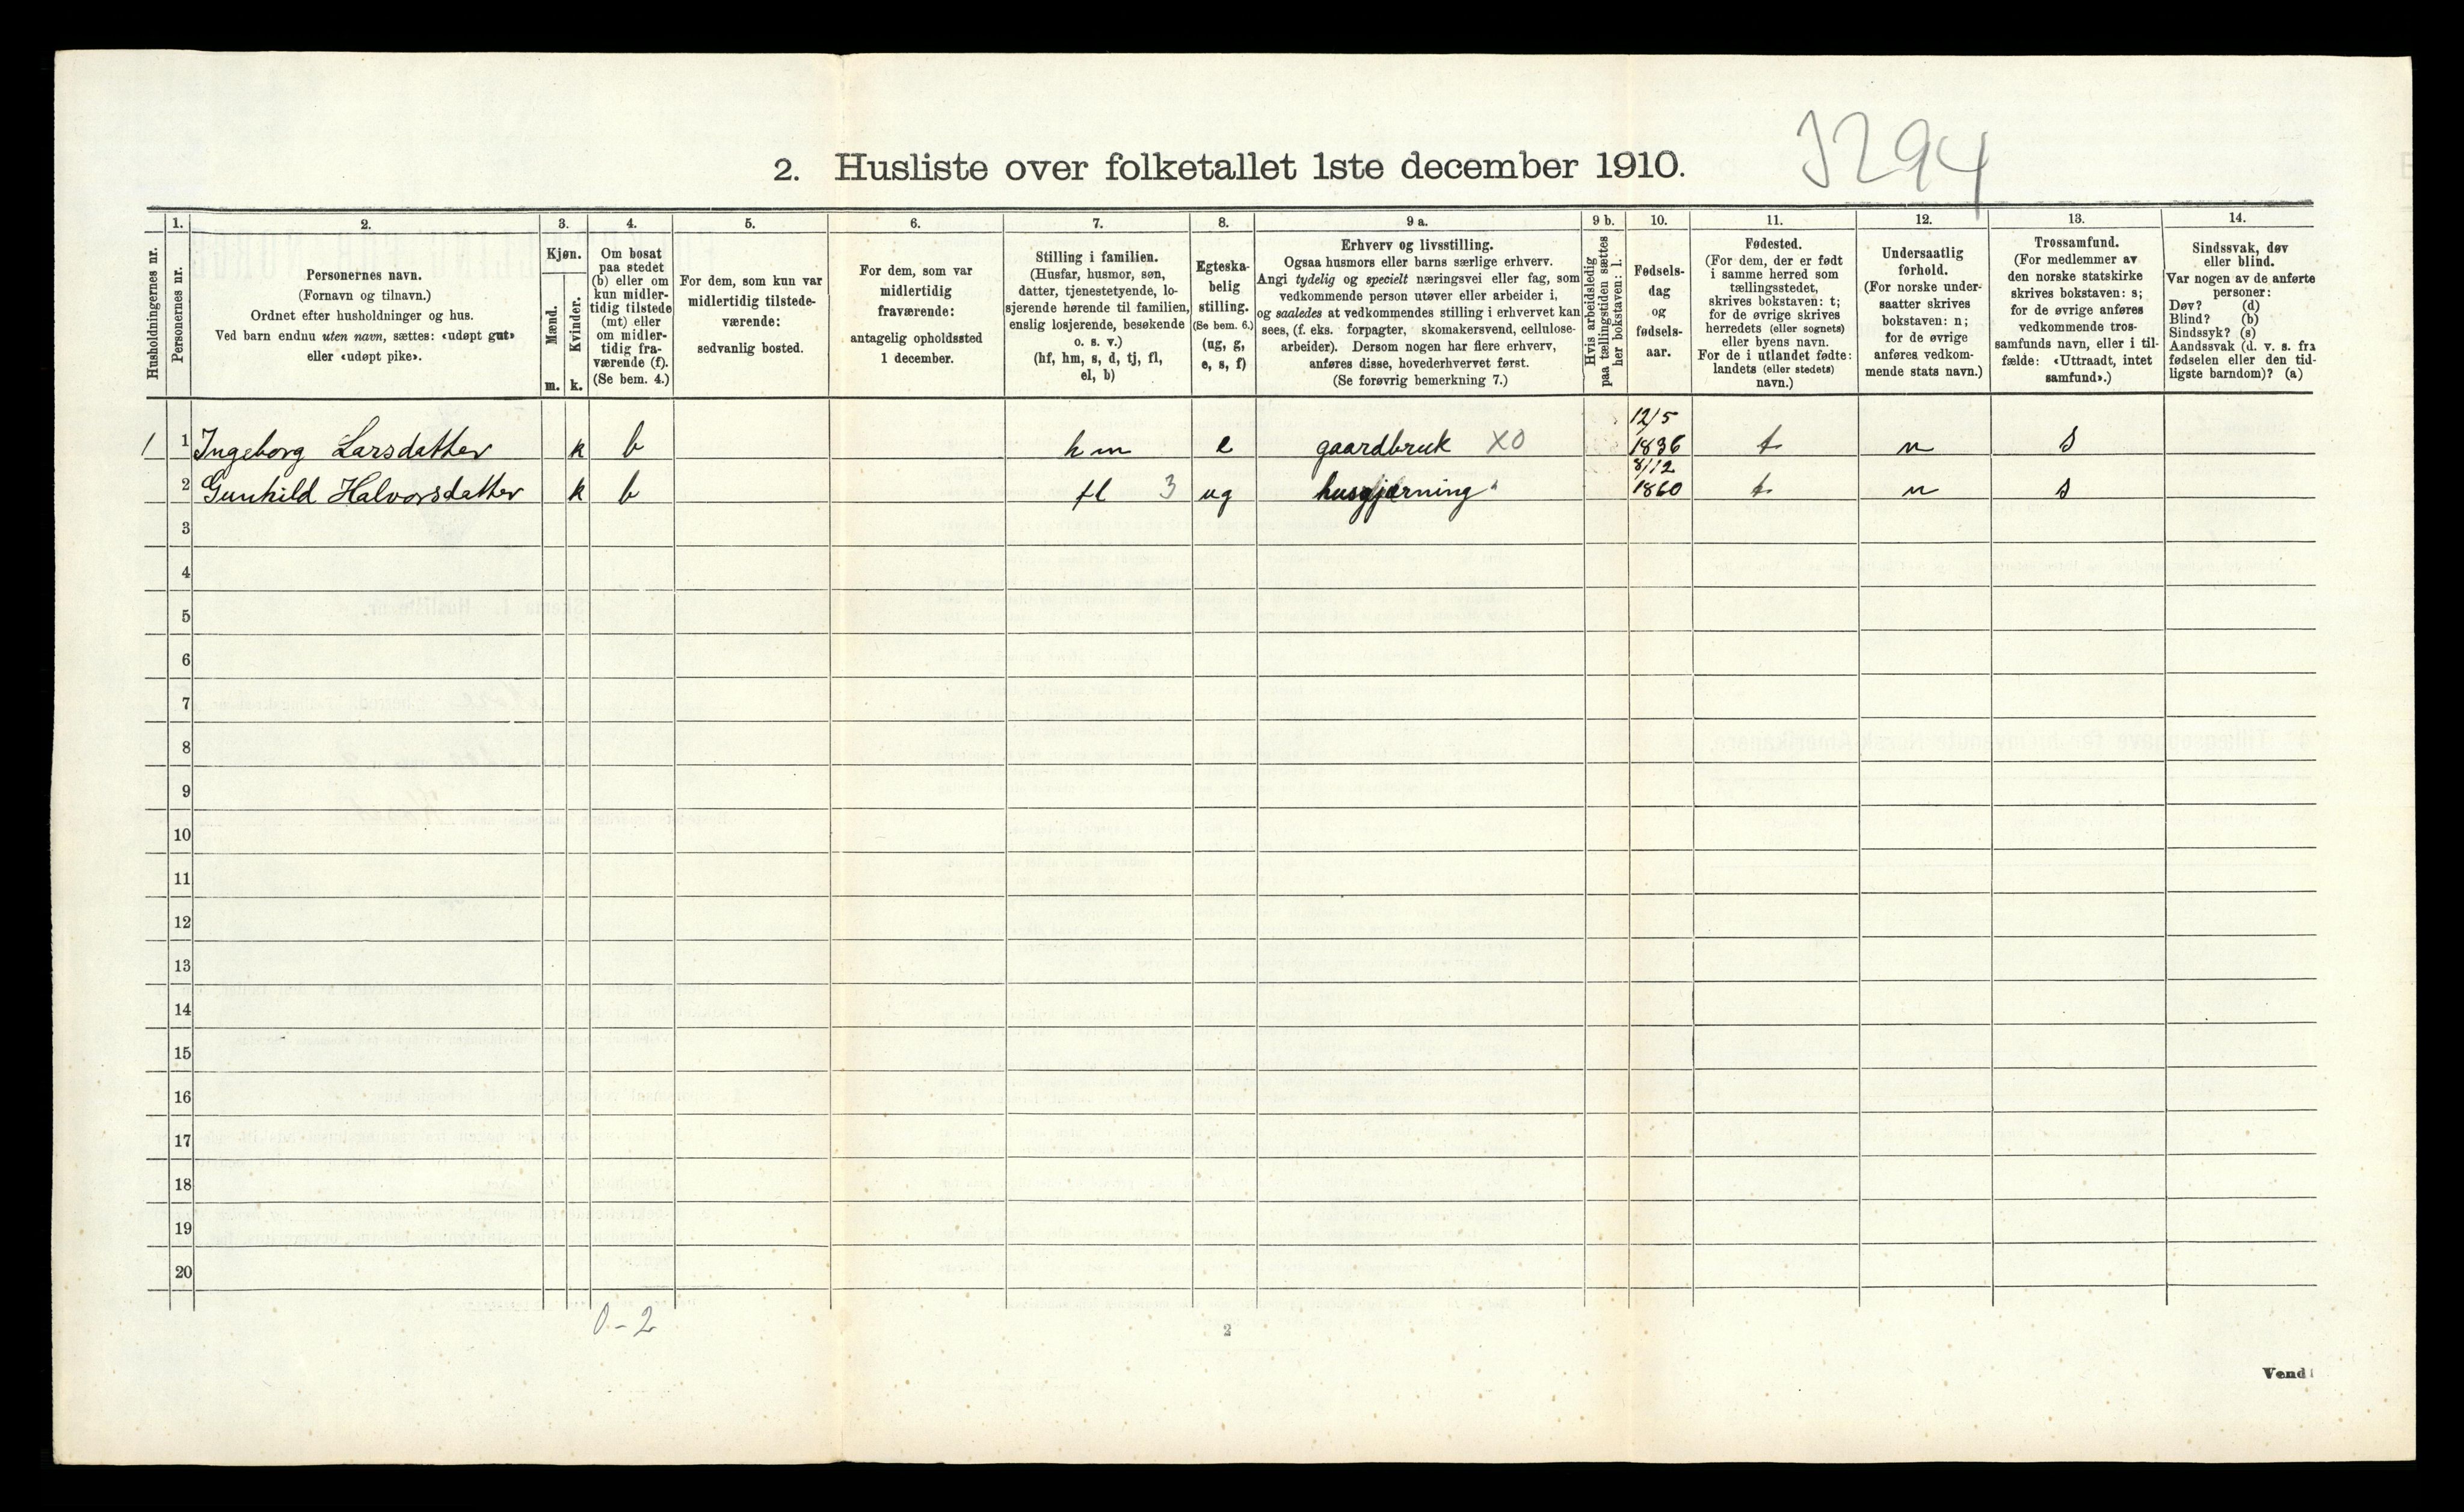 3294
2. Husliste over folketallet 1ste december 1910.
1. 2. 3. 4. 5. 6. 7. 8. 9 a. 9 b. 10. 11. 12. 13. 14.
Husholdningernes nr.
Personernes nr.
Personernes navn.
(Fornavn og tilnavn.)
Ordnet efter husholdninger og hus.
Ved barn endnu uten navn, sættes: «udøpt gut»
eller «udøpt pike».
Kjøn.
Mænd.
Kvinder.
m. k.
Om bosat
paa stedet
(b) eller om
kun midler-
tidig tilstede
(mt) eller
om midler-
tidig fra-
værende (f).
(Se bem. 4.)
For dem, som kun var
midlertidig tilstede-
værende:
sedvanlig bosted.
For dem, som var
midlertidig
fraværende:
antagelig opholdssted
1 december.
Stilling i familien.
(Husfar, husmor, søn,
datter, tjenestetyende, lo-
sjerende hørende til familien,
enslig losjerende, besøkende
o. s. v.)
(hf, hm, s, d, tj, fl,
el, b)
Egteska-
belig
stilling.
(Se bem. 6.)
(ug, g,
e, s, f)
Erhverv og livsstilling.
Ogsaa husmors eller barns særlige erhverv.
Angi tydelig og specielt næringsvei eller fag, som
vedkommende person utøver eller arbeider i,
og saaledes at vedkommendes stilling i erhvervet kan
sees, (f. eks. forpagter, skomakersvend, cellulose-
arbeider). Dersom nogen har flere erhverv,
anføres disse, hovederhvervet først.
(Se forøvrig bemerkning 7.)
Hvis arbeidsledig
paa tællingstiden sættes
her bokstaven: l.
Fødsels-
dag
og
fødsels-
aar.
Fødested.
(For dem, der er født
i samme herred som
tællingsstedet,
skrives bokstaven: t;
for de øvrige skrives
herredets (eller sognets)
eller byens navn.
For de i utlandet fødte:
landets (eller stedets)
navn.)
Undersaatlig
forhold.
(For norske under-
saatter skrives
bokstaven: n;
for de øvrige
anføres vedkom-
mende stats navn.)
Trossamfund.
(For medlemmer av
den norske statskirke
skrives bokstaven: s;
for de øvrige anføres
vedkommende tros-
samfunds navn, eller i til-
fælde: «Uttraadt, intet
samfund».)
Sindssvak, døv
eller blind.
Var nogen av de anførte
personer:
Døv? (d)
Blind? (b)
Sindssyk? (s)
Aandssvak (d. v. s. fra
fødselen eller den tid-
ligste barndom)? (a)
12/5
1 1 Ingeborg Larsdatter k b hm e gaardbruk XO 1836 t n s
8/12
2 Gunhild Halvorsdatter k b fl 3 ug husgjerning 1860 t n s
3
4
5
6
7
8
9
10
11
12
13
14
15
16
17
18
19
20
0-2
2
Vend!